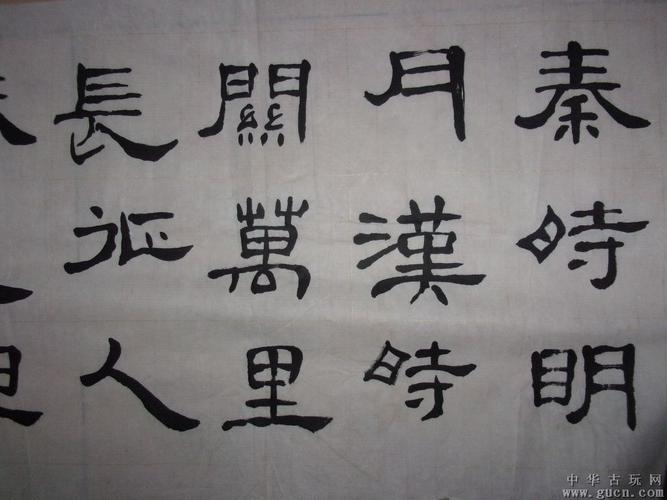 秦時明
月漢時
關萬里
長征人
中华古玩网
www.gucn.com